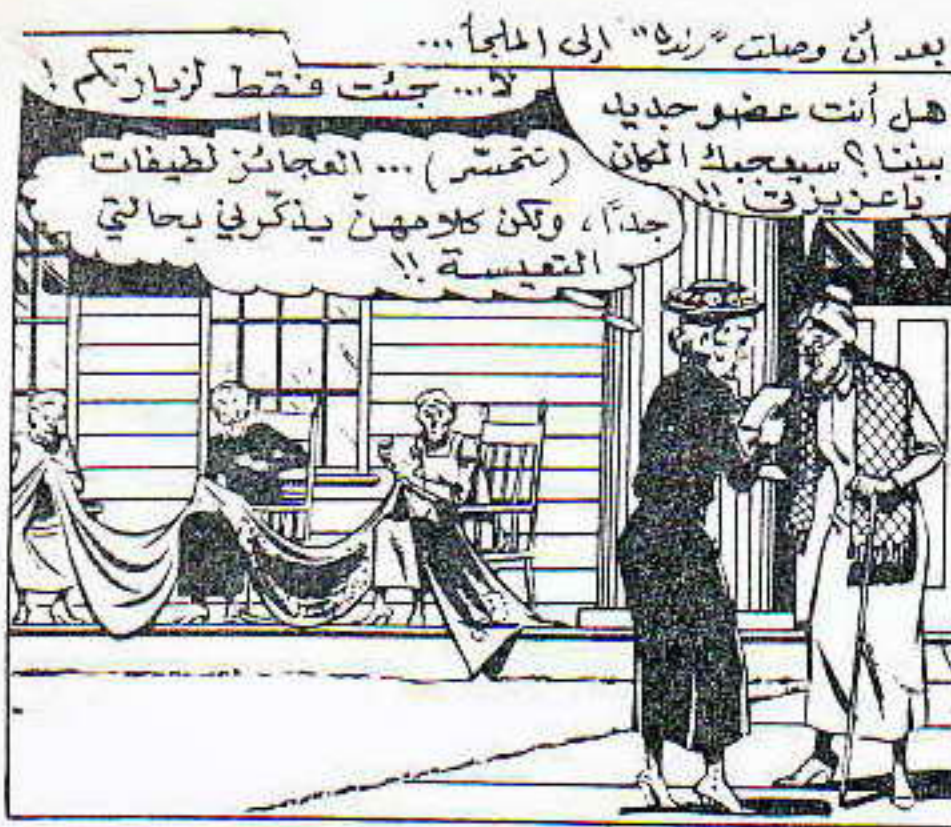 بعد أن وصلت "رندا" إلى الملجأ...
هل أنت عضو جديد
بيننا؟ سيعجبك المكان
يا عزيزتي !!
لا... جئت فقط لزيارتكم !
(تتحسّر)... العجائز لطيفات
جدًا، ولكن كلامهنّ يذكّرني بحالتي
التعيسة !!